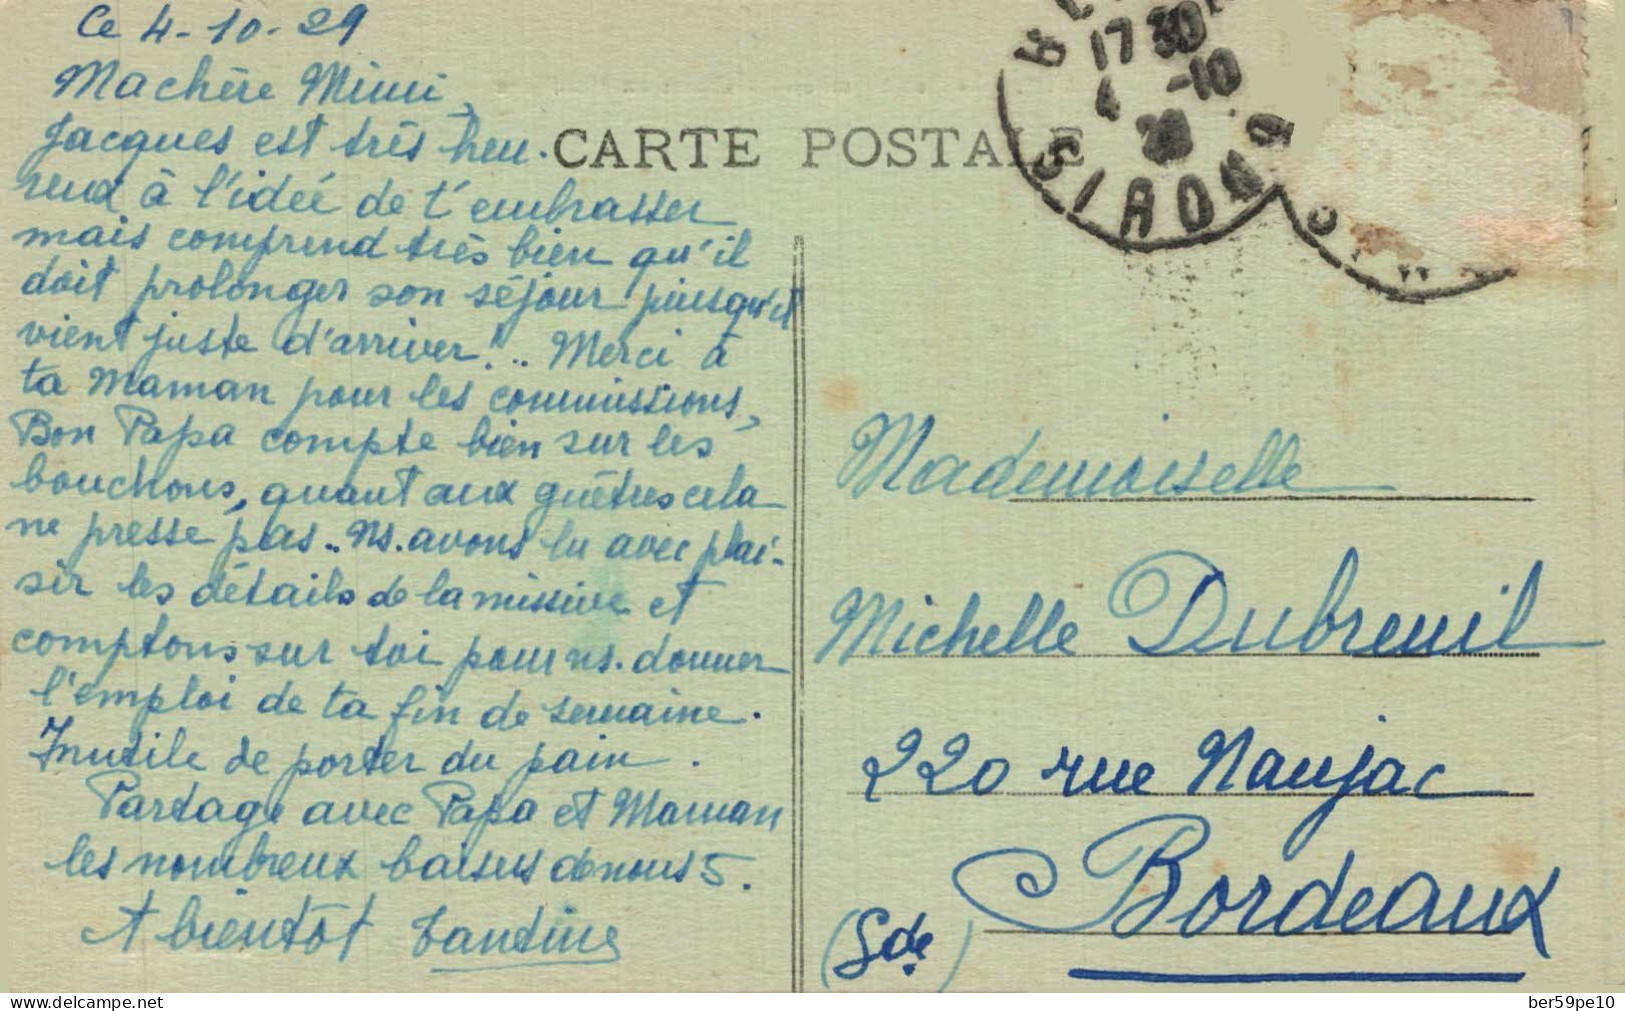 Ce 4-10-29
Ma chère Mimi,
Jacques est très heu-
reux à l'idée de t'embrasser
mais comprend très bien qu'il
doit prolonger son séjour puisqu'il
vient juste d'arriver!.. Merci à
ta Maman pour les commissions,
Bon Papa compte bien sur les
bouchons, quant aux guêtres cela
ne presse pas.. Ns. avons lu avec plai-
sir les détails de la missive et
comptons sur toi pour ns. donner
l'emploi de ta fin de semaine.
Inutile de porter du pain.
Partage avec Papa et Maman
les nombreux baisers de nous 5.
A bientôt Tantine
CARTE POSTALE
17 30
4 -10
29
GIRONDE
Mademoiselle
Michelle Dubreuil
220 rue Naujac
Bordeaux
(Gde)
www.delcampe.net
ber59pe10